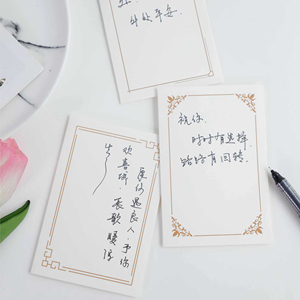 平安.
祝你,
时时有选择,
路路有回转.
愿你遇良人,予你
欢喜城,长歌暖浮
生